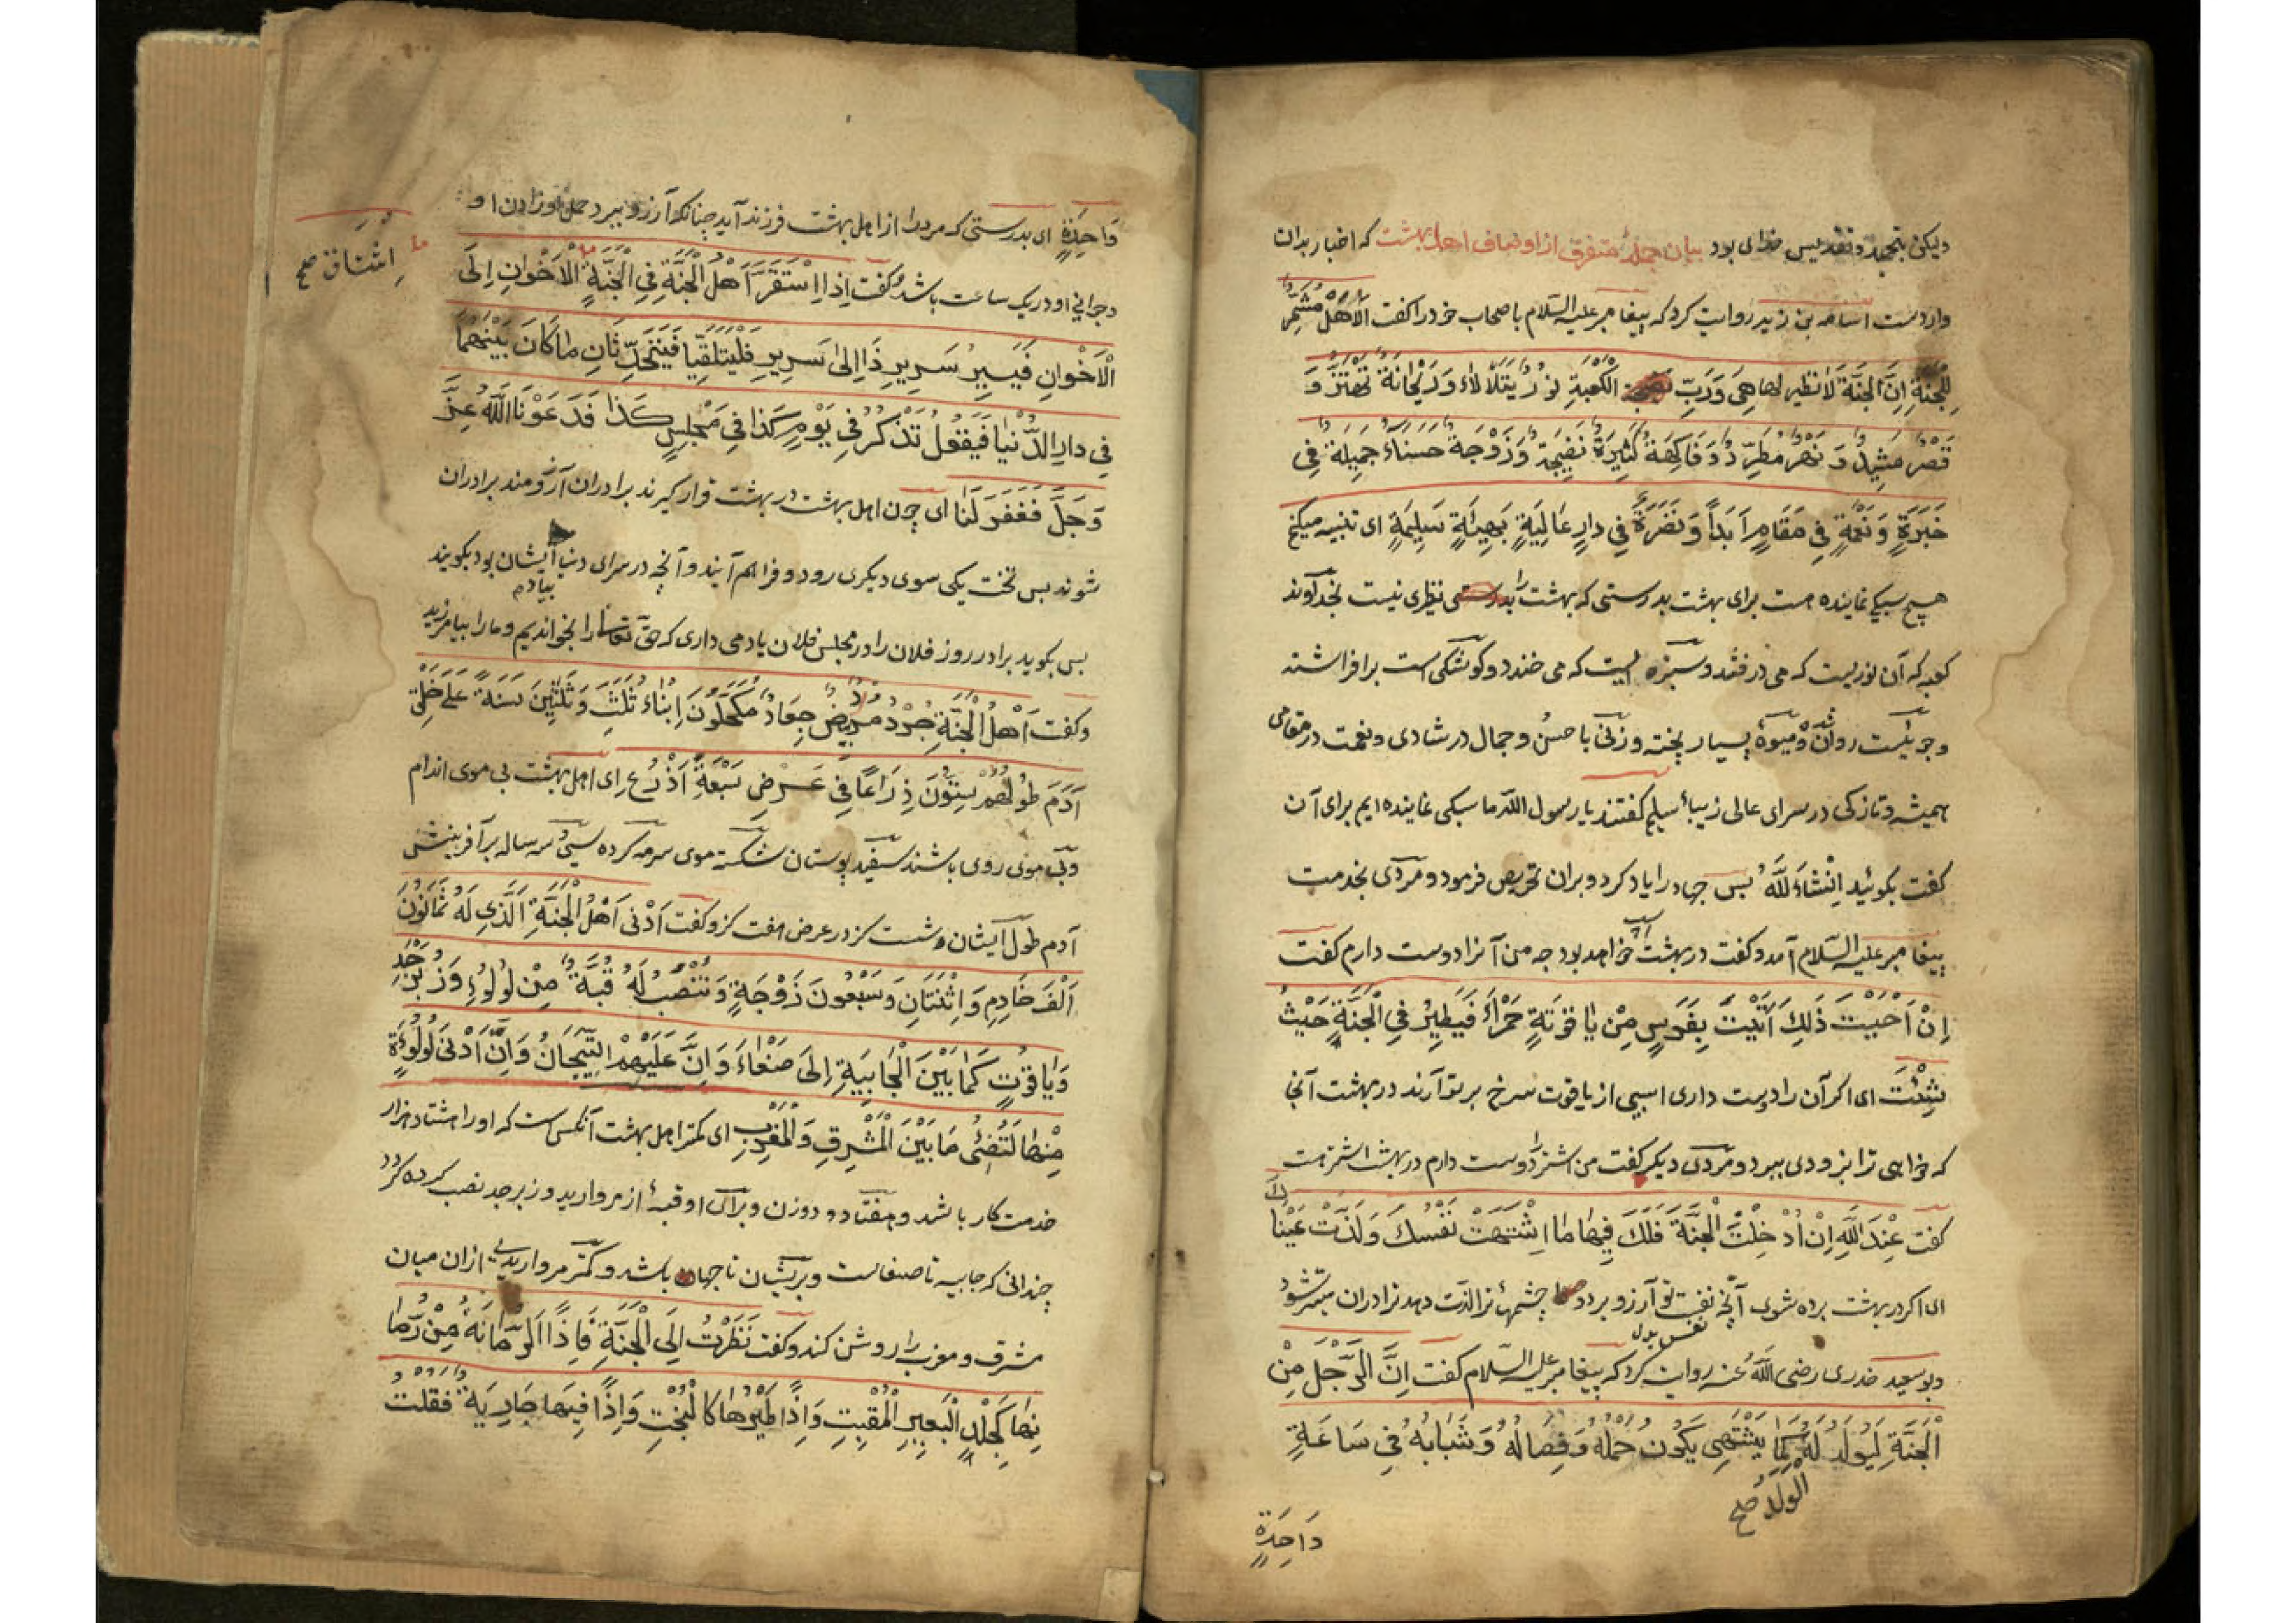 ولیکن بتحمید و تقدیس خدای بود بیان جملهٔ متفرق از اوصاف اهل بهشت که اخبار بدان
واردست اسامه بن زید روایت کرد که پیغامبر علیه السلام با صحاب خود را گفت اَلَاهَلْ مُشَمِّرٌ
لِلْجَنَّةِ اِنَّ الْجَنَّةَ لَانَظِیرَ لَهَا هِیَ وَرَبِّ الْکَعْبَةِ نُورٌ یَتَلَأْلَاءُ وَرَیْحَانَةٌ تَهْتَزُّ وَ
قَصْرٌ مَشِیدٌ وَ نَهْرٌ مُطَّرِدٌ وَفَاکِهَةٌ کَثِیرَةٌ نَضِیجَةٌ وَزَوْجَةٌ حَسْنَاءُ جَمِیلَةٌ فِی
حَبَرَةٍ وَ نَعْمَةٍ فِی مَقَامٍ اَبَدًا وَ نَضْرَةً فِی دَارٍ عَالِیَةٍ بَهِیَّةٍ سَلِیمَةٍ ای تنبیه میکنم
هیچ سبکی نماینده هست برای بهشت بدرستی که بهشت را نظیری نیست بخداوند
کعبه که آن نوریست که می درفشد و سبزه ایست که می خندد و کوشکی است برافراشته
و جوئیست روان و میوهٔ بسیار پخته و زنی با حسن و جمال در شادی و نعمت در مقامی
همیشه و تازکی در سرای عالی زیباء سلیم کفتند یا رسول الله ما سبکی نماینده ایم برای آن
کفت بکوئید اِنْشَاءَ للَّهُ بس جهاد را یاد کرد و بران تحریص فرمود و مردی بخدمت
پیغامبر علیه السلام آمد و کفت در بهشت اسپ خواهد بود چه من آنرا دوست دارم کفت
اِنْ اَحْبَبْتَ ذٰلِکَ اُتِیْتَ بِفَرَسٍ مِنْ یَاقُوتَةٍ حَمْرَاءَ فَیَطِیرُ فِی الْجَنَّةِ حَیْثُ
شِئْتَ ای اکر آن را دوست داری اسبی از یاقوت سرخ بر تو آرند در بهشت آنجا
که خواهی ترا بزودی ببرد و مردی دیکر کفت من اشتر را دوست دارم در بهشت اشتر هست
کفت عِنْدَ اللهِ اِنْ اُدْخِلْتَ الْجَنَّةَ فَلَکَ فِیهَا مَا اشْتَهَتْ نَفْسُکَ وَلَذَّتْ عَیْنَاکَ
ای اکر در بهشت برده شوی آنچه نفس تو آرزو برد و چشمهاء ترا لذت دهد ترا دران میسر شود
نفس بدل
و بوسعید خدری رضی الله عنه روایت کرد که پیغامبر علیه السلام کفت اِنَّ الرَّجُلَ مِنْ
اَلْجَنَّةِ لَیُولَدُ لَهُ کَمَا یَشْتَهِی یَکُونُ حَمْلُهُ وَفِصَالُهُ وَشَبَابُهُ فِی سَاعَةٍ
الولد صح
وَاحِدَةٍ
وَاحِدَةٍ ای بدرستی که مرد را از اهل بهشت فرزند آید چنانکه آرزو ببرد حمل او و زادن او
و جوانی او در یک ساعت باشد و کفت اِذَا اسْتَقَرَّ اَهْلُ الْجَنَّةِ فِی الْجَنَّةِ الْاَخْوَانِ اِلَی
اشتاق صح
الْاَخْوَانِ فَیَسِیرُ سَرِیرُ ذَا اِلیٰ سَرِیرِ فَلْیَتَلَقَّیَا فَیَتَحَدَّثَانِ مَا کَانَ بَیْنَهُمَا
فِی دَارِ الدُّنْیَا فَیَقُولُ تَذْکُرُ فِی یَوْمِ کَذَا فِی مَجْلِسِ کَذَا قَدْ دَعَوْنَا اللهَ عَزَّ
وَ جَلَّ فَغَفَرَ لَنَا ای چون اهل بهشت در بهشت قرار کیرند برادران آرزومند برادران
شوند بس تخت یکی سوی دیکری رود و فراهم آیند و آنچه در سرای دنیا میان ایشان بود بکویند
بس بکوید برادر روز فلان را در مجلس فلان یاد می داری که حق تعالی را بخواندیم و ما را بیامرزید
و کفت اَهْلُ الْجَنَّةِ جُرْدٌ مُرْدٌ بِیضٌ جِعَادٌ مُکَحَّلُونَ اَبْنَاءُ ثُلٰثٍ وَ ثَلٰثِینَ سَنَةً عَلیٰ خَلْقِ
آدَمَ طُولُهُمْ سِتُّونَ ذِرَاعًا فِی عَرْضِ سَبْعَةِ اَذْرُعٍ ای اهل بهشت بی موی اندام
و بی موی روی باشند سفید پوستان شکسته موی سرمه کرده سی و سه ساله بر آفرینش
آدم طول ایشان شست کز در عرض هفت کز و کفت اَدْنیٰ اَهْلِ الْجَنَّةِ الَّذِی لَهُ ثَمَانُونَ
اَلْفَ خَادِمٍ وَ اِثْنَتَانِ وَ سَبْعُونَ زَوْجَةً وَ تُنْصَبُ لَهُ قُبَّةٌ مِنْ لُؤْلُؤٍ وَ زَبَرْجَدٍ
وَ یَاقُوتٍ کَمَا بَیْنَ الْجَابِیَةِ اِلیٰ صَنْعَاءَ وَ اِنَّ عَلَیْهِمُ التِّیجَانَ وَ اِنَّ اَدْنیٰ لُؤْلُؤَةٍ
مِنْهَا لَتُضِئُ مَا بَیْنَ الْمَشْرِقِ وَالْمَغْرِبِ ای کمتر اهل بهشت آنکس است که او را هشتاد هزار
خدمتکار باشد و هفتاد و دو زن و برای او قبهٔ از مروارید و زبرجد نصب کرده کردد
چندانی که جابیه تا صنعاست و بریشان تاجهاء باشد و کمتر مرواریدی ازان میان
مشرق و مغرب را روشن کند و کفت نَظَرْتُ اِلَی الْجَنَّةِ فَاِذَا الرُّمَّانَةُ مِنْ رُمَّا
نِهَا کَجِلْدِ الْبَعِیرِ الْمُقَتَّبِ وَ اِذَا طَیْرُهَا کَالْبُخْتِ وَ اِذَا فِیهَا جَارِیَةٌ فَقُلْتُ